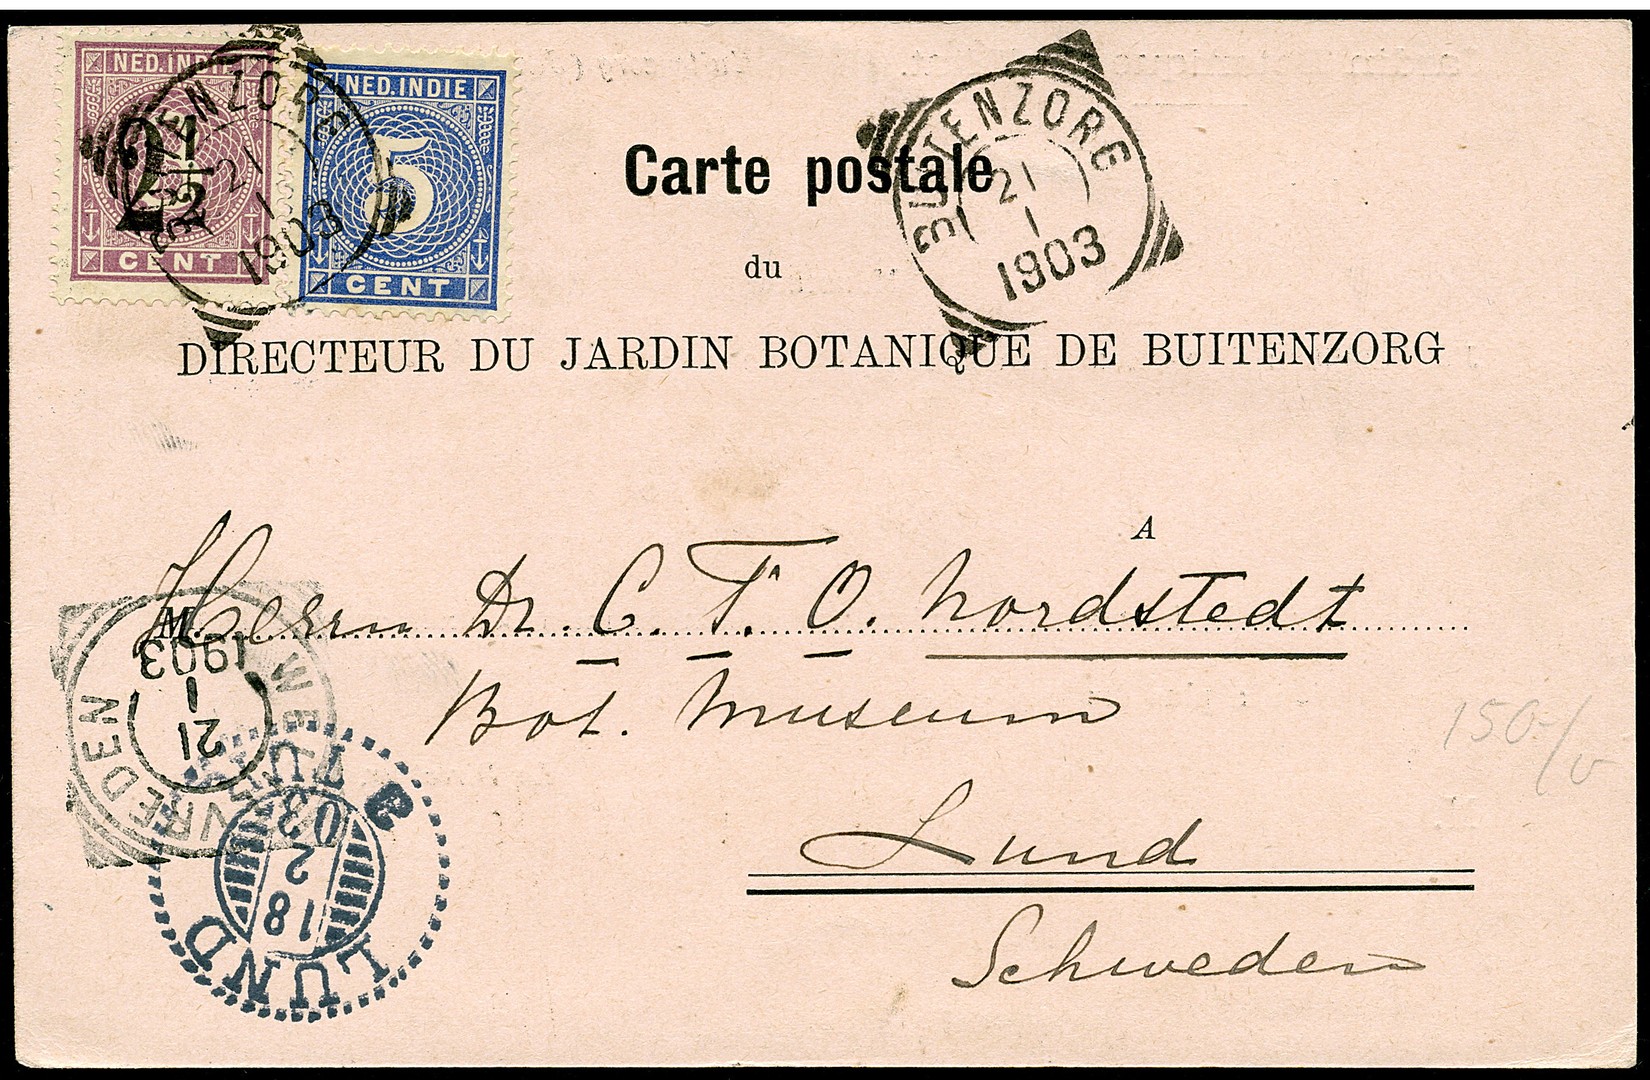 NED. INDIE
2 1/2
CENT
NED. INDIE
5
CENT
BUITENZORG
21
1
1903
BUITENZORG
21
1
1903
Carte postale
du
DIRECTEUR DU JARDIN BOTANIQUE DE BUITENZORG
A
M
Herrn Dr. C. F. O. Nordstedt
Bot. Museum
Lund
Schweden
WELTEVREDEN
21
1
1903
LUND
18
2
03
150.-/